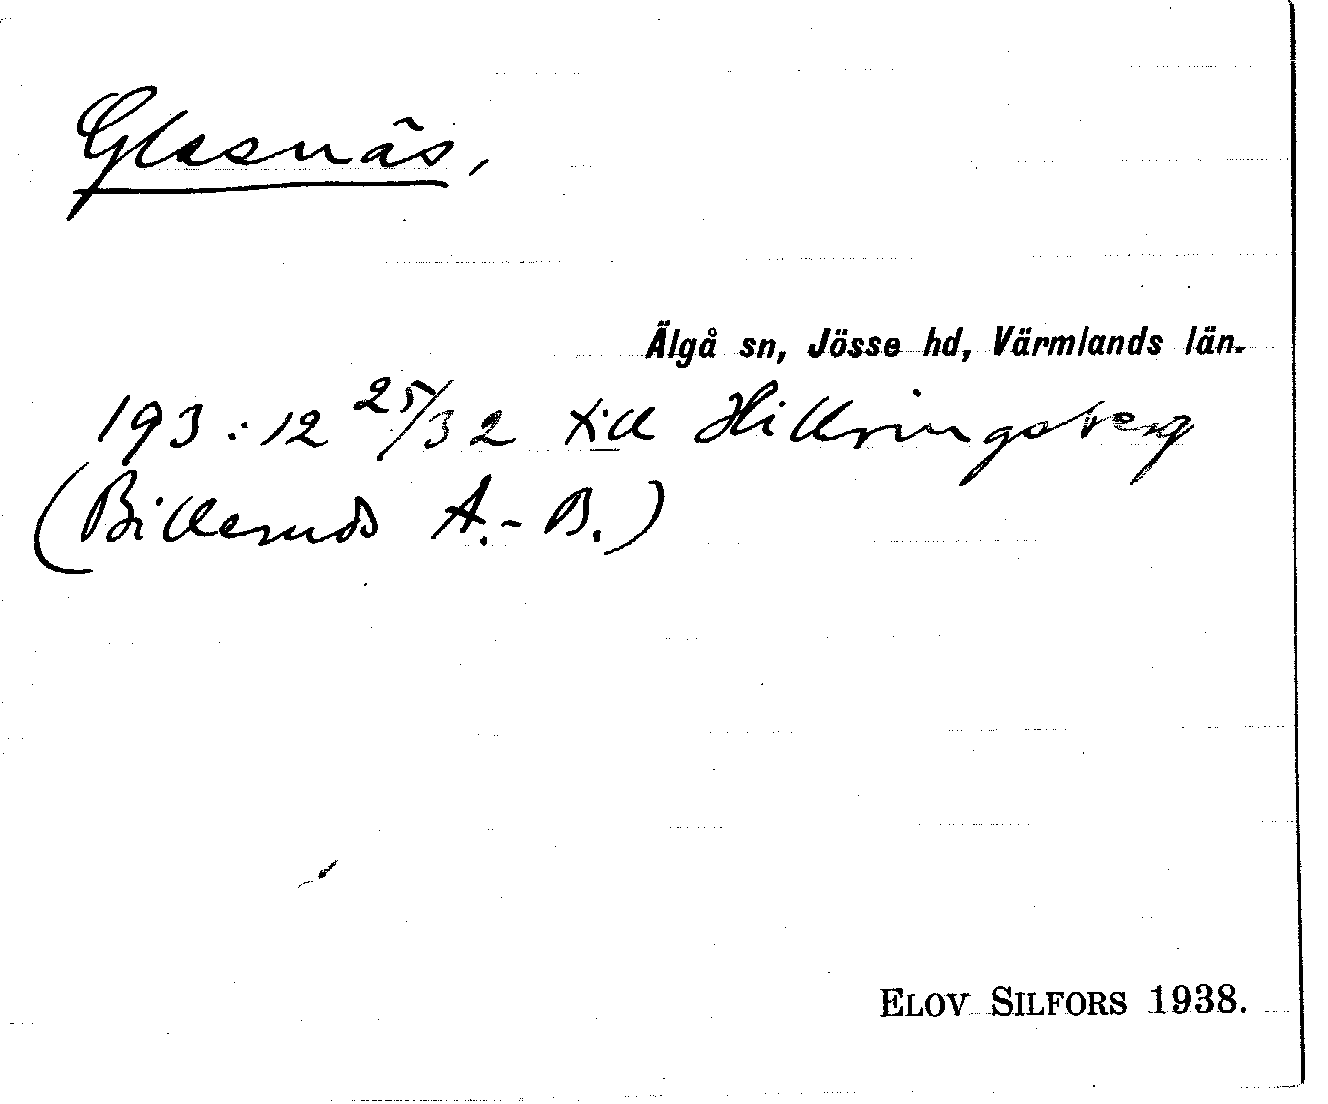 Glasnäs,
Älgå sn, Jösse hd, Värmlands län.
193:12 25/32 till Hillringsberg
(Billeruds A.-B.)
ELOV SILFORS 1938.